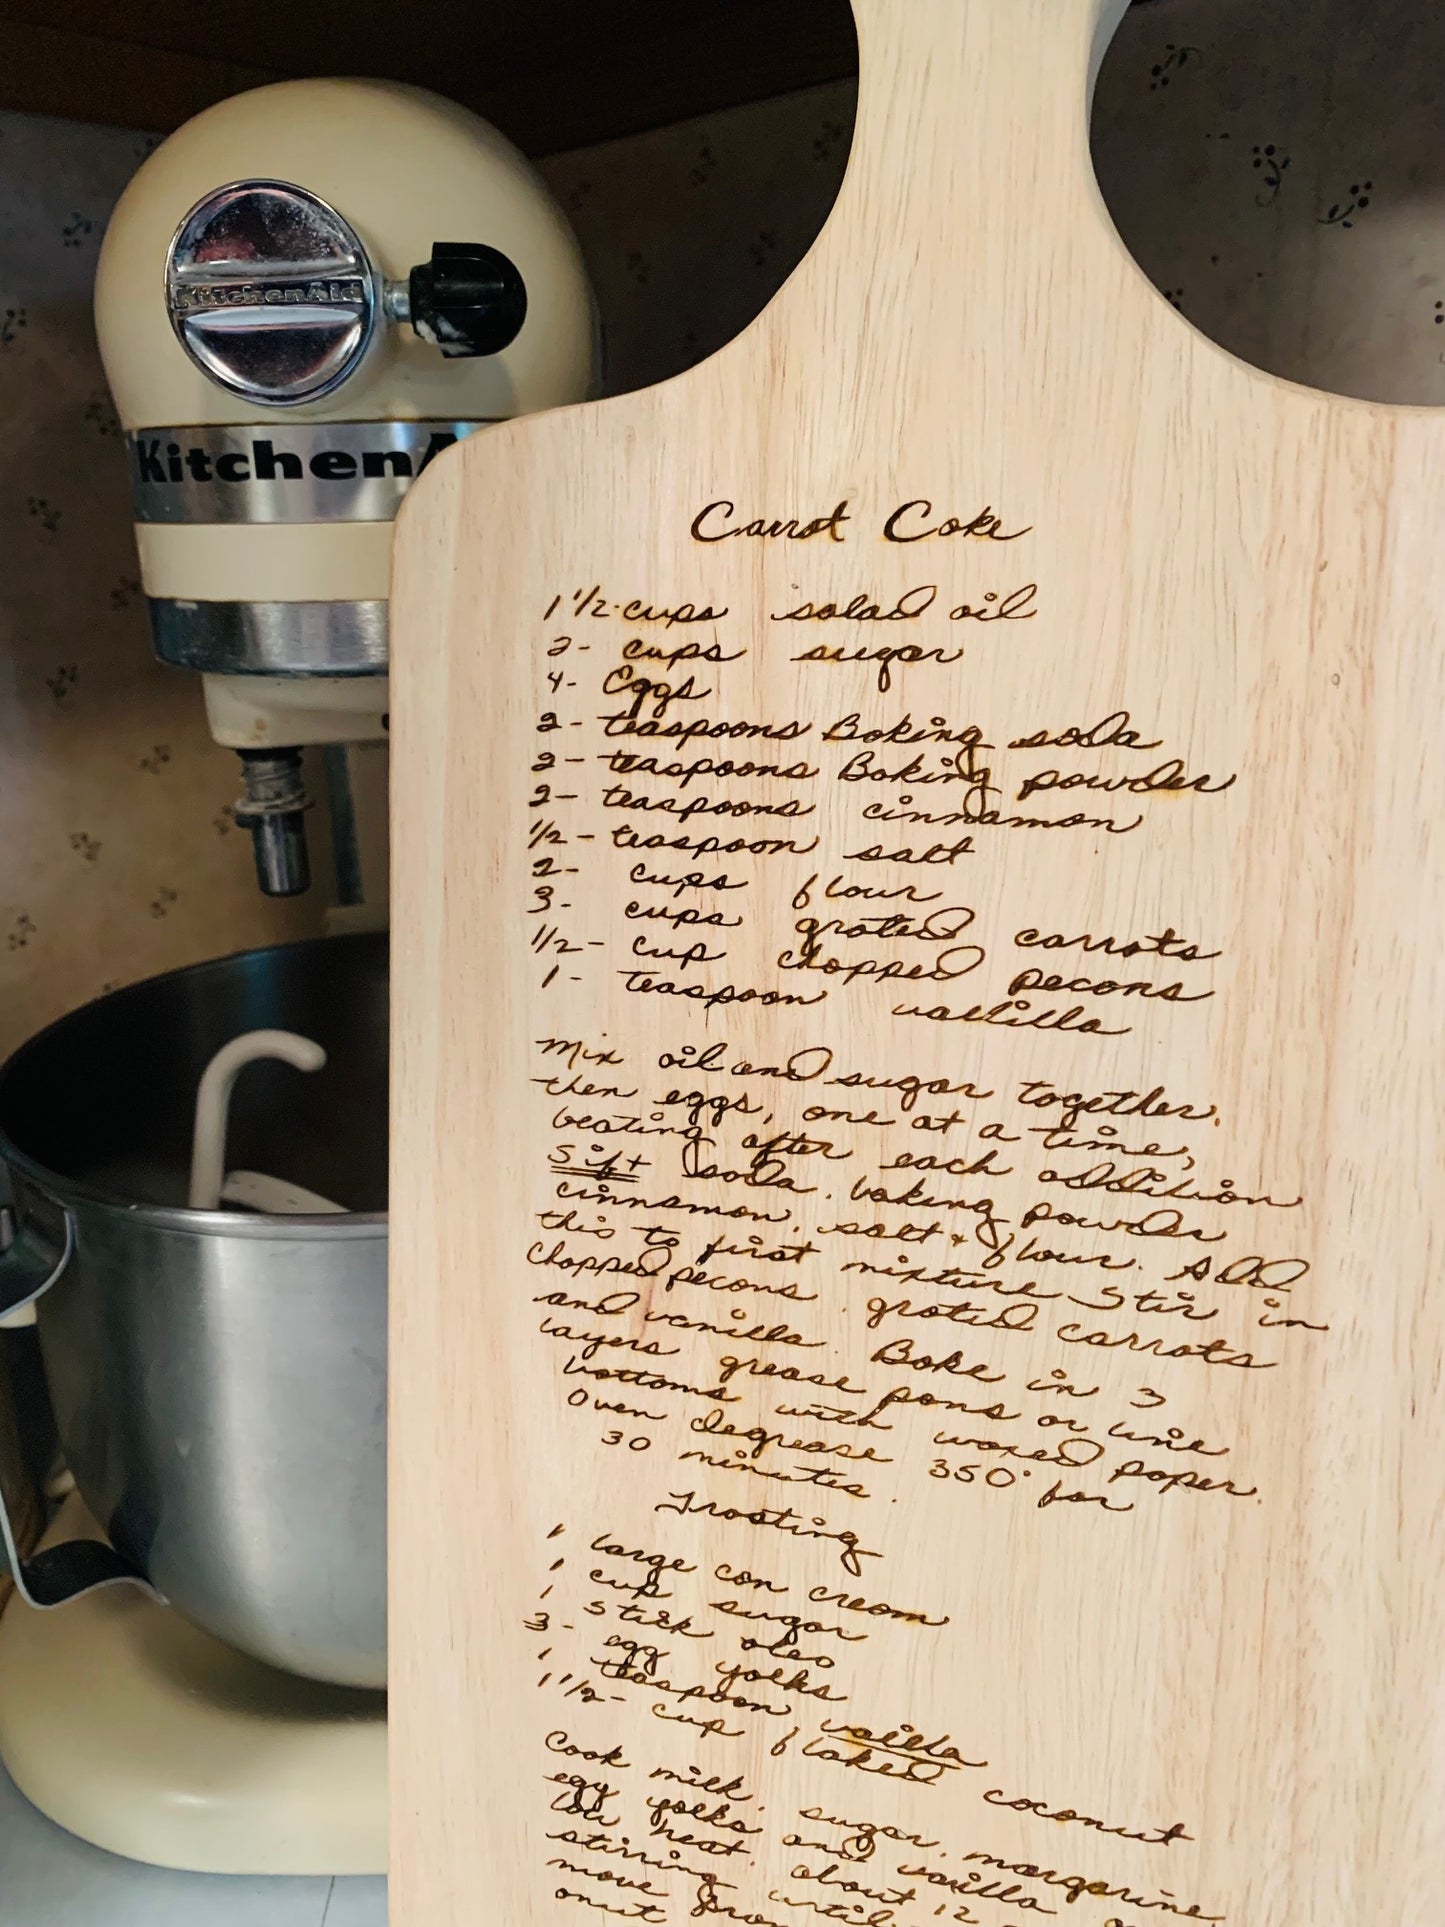 KitchenAid
KitchenA
Carrot Cake
1 1/2 cups salad oil
2- cups sugar
4- Eggs
2- teaspoons Baking soda
2- teaspoons Baking powder
2- teaspoons cinnamon
1/2- teaspoon salt
2- cups flour
3- cups grated carrots
1/2- cup chopped pecans
1- teaspoon vanilla
Mix oil and sugar together.
then eggs, one at a time,
beating after each addition
Sift soda. baking powder
cinnamon. salt + flour. Add
this to first mixture Stir in
chopped pecans. grated carrots
and vanilla. Bake in 3
layers grease pans or line
bottoms with waxed paper.
Oven degrease 350° for
30 minutes.
Frosting
1 large can cream
1 cup sugar
1 stick oleo
3- egg yolks
1 teaspoon vanilla
1 1/2- cup flaked coconut
Cook milk. sugar. margarine.
egg yolks and vanilla
low heat. about 12
stirring until
move from
onut